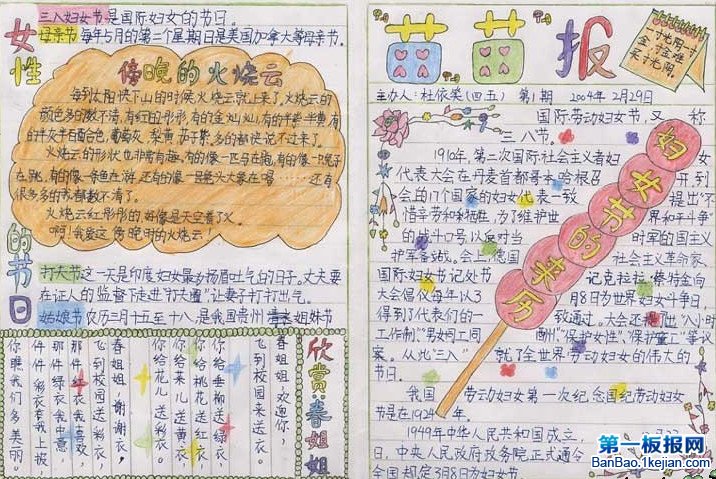 女性的节日
三八妇女节是国际妇女的节日。
母亲节 每年5月的第二个星期日是美国加拿大等母亲节。
傍晚的火烧云
每到太阳快下山的时候火烧云就上来了,火烧云的
颜色多的数不清,有红彤彤的,有的金灿灿,有的半紫半黄,有
的半灰半百合色,葡萄灰、梨黄、茄子紫,多的都快说不过来了。
火烧云的形状也非常有趣,有的像一匹马在跑,有的像一只兔子
在跳,有的像一条鱼在游,还有的像一只大象在唱……还有
很多多的我都数不清了。
火烧云红彤彤的,好像是天空着了火。
啊!我爱这傍晚时的火烧云!
打夫节这一天是印度妇女最扬眉吐气的日子。丈夫要
在证人的监督下走进"打夫圈"让妻子打打出气。
姑娘节农历三月十五至十八,是我国贵州姐妹节
欣赏:春姐姐
春姐姐,欢迎你,
飞到校园来送衣,
你给垂柳送绿衣,
你给桃花送红衣,
你给菜儿送黄衣,
你给花儿送彩衣。
春姐姐,谢谢衣,
飞到校园送彩衣,
那件红衣我喜欢,
那件绿衣我中意,
件件彩衣套我上披
你瞧我们多美丽。
苗苗报
一寸光阴一寸
金,寸金难
买寸光阴。
主办人:杜依笑(四五) 第1期 2004年2月29日
国际劳动妇女节,又称
三八节。
妇女节的来历
1910年,第二次国际社会主义者妇女
代表大会在丹麦首都哥本哈根召开到
会的17个国家的妇女代表一致提出"不
为了维护世界和平斗争"
的战斗口号,以反对当时军的国主义
护军备战。会上,德国社会主义革命家
国际妇女节记处书记克拉拉·蔡特金向
大会倡仪每年以3月8日为世界妇女斗争日
得到了代表们的一致通过。大会还提出"八小时
工作制""男女同工同酬""保护女性""保护童工"等议
案。从此"三八"就了全世界劳动妇女的伟大的
节日。
我国劳动妇女第一次纪念国纪劳动妇女
节是在1924年。
1949年中华人民共和国成立,
日,中央人民政府政务院正式通令
全国规定3月8日为妇女节
第一板报网
BanBao.1kejian.com